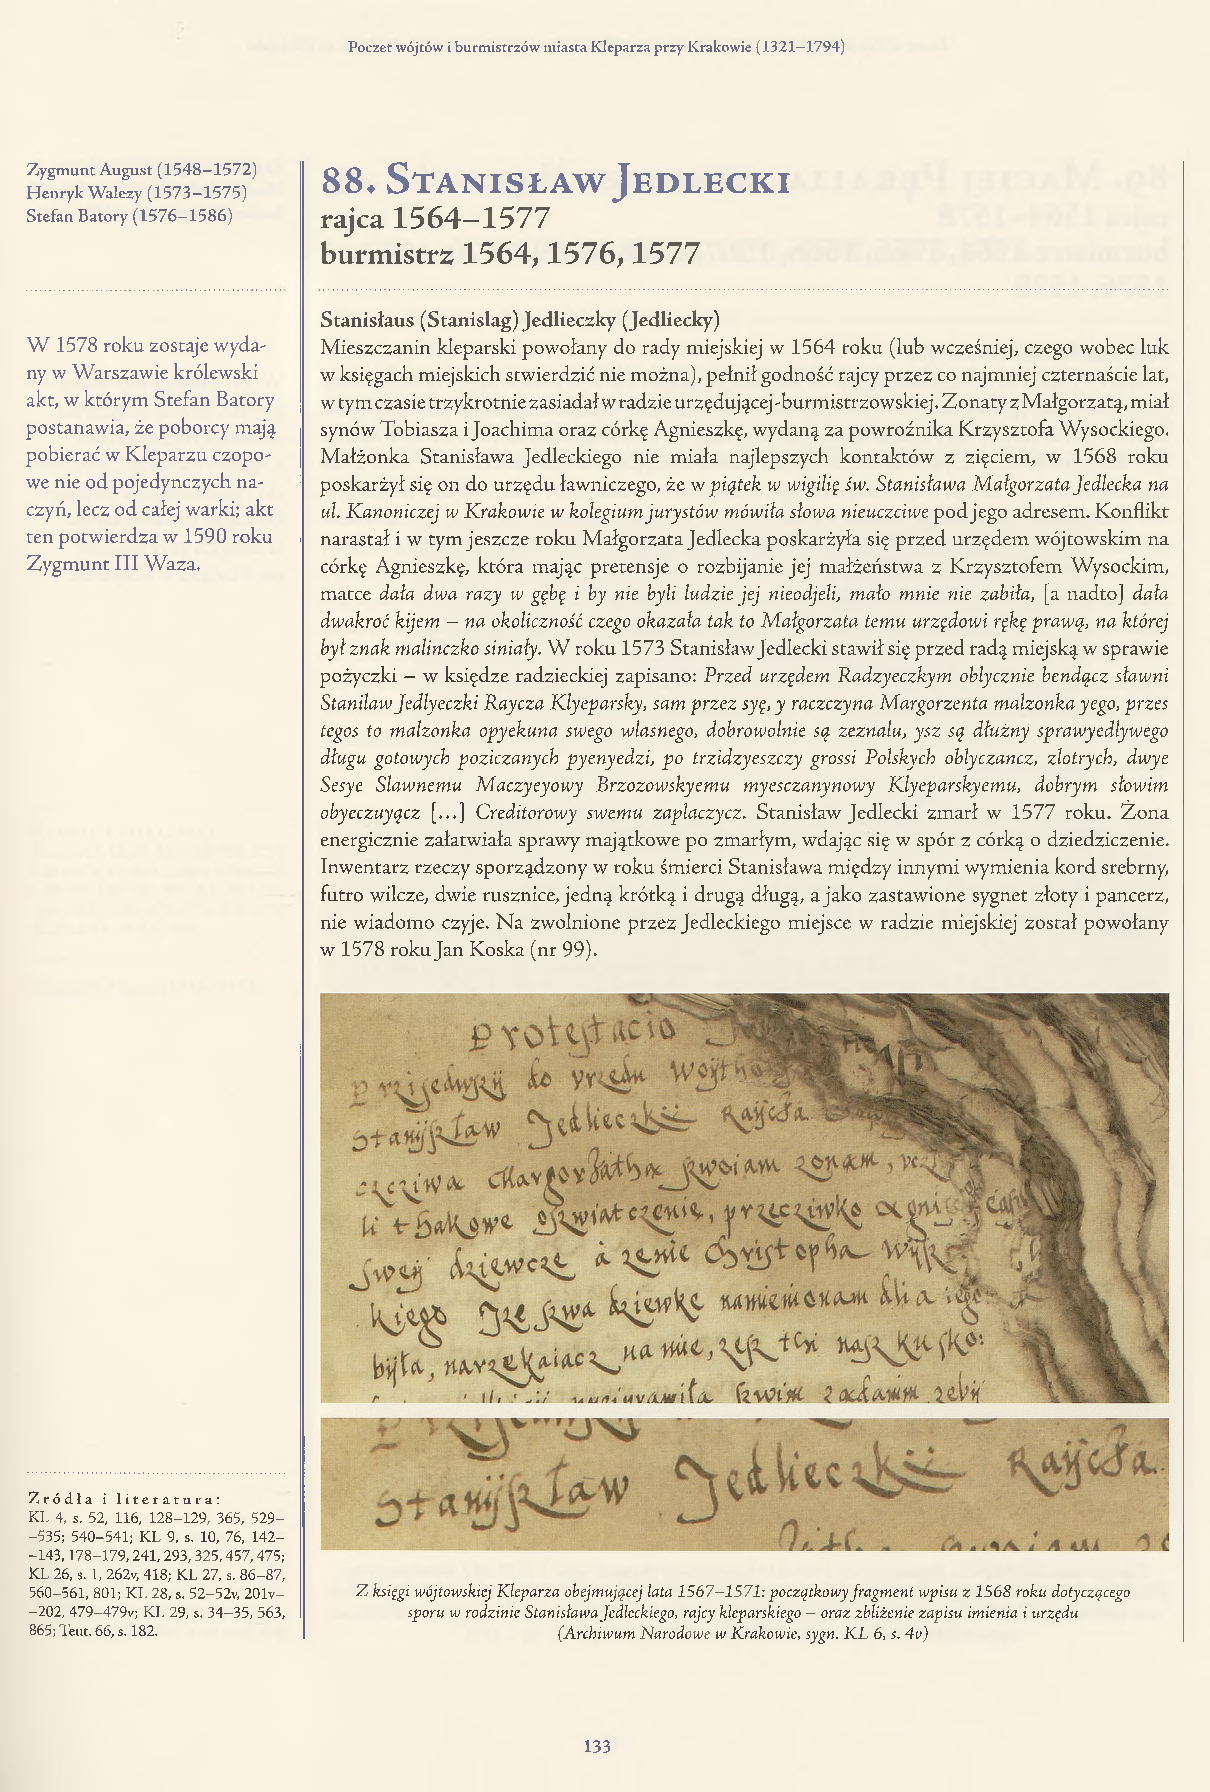 Poczet wójtów i burmistrzów miasta Kleparza przy Krakowie (1321–1794)
Zygmunt August (1548–1572)
Henryk Walezy (1573–1575)
Stefan Batory (1576–1586)
W 1578 roku zostaje wyda-
ny w Warszawie królewski
akt, w którym Stefan Batory
postanawia, że poborcy mają
pobierać w Kleparzu czopo-
we nie od pojedynczych na-
czyń, lecz od całej warki; akt
ten potwierdza w 1590 roku
Zygmunt III Waza.
Źródła i literatura:
KL 4, s. 52, 116, 128–129, 365, 529–
–535; 540–541; KL 9, s. 10, 76, 142–
–143, 178–179, 241, 293, 325, 457, 475;
KL 26, s. 1, 262v, 418; KL 27, s. 86–87,
560–561, 801; KL 28, s. 52–52v, 201v–
–202, 479–479v; KL 29, s. 34–35, 563,
865; Teut. 66, s. 182.
88. Stanisław Jedlecki
rajca 1564–1577
burmistrz 1564, 1576, 1577
Stanisłaus (Stanislag) Jedlieczky (Jedliecky)
Mieszczanin kleparski powołany do rady miejskiej w 1564 roku (lub wcześniej, czego wobec luk
w księgach miejskich stwierdzić nie można), pełnił godność rajcy przez co najmniej czternaście lat,
w tym czasie trzykrotnie zasiadał w radzie urzędującej-burmistrzowskiej. Żonaty z Małgorzatą, miał
synów Tobiasza i Joachima oraz córkę Agnieszkę, wydaną za powroźnika Krzysztofa Wysockiego.
Małżonka Stanisława Jedleckiego nie miała najlepszych kontaktów z zięciem, w 1568 roku
poskarżył się on do urzędu ławniczego, że w piątek w wigilię św. Stanisława Małgorzata Jedlecka na
ul. Kanoniczej w Krakowie w kolegium jurystów mówiła słowa nieuczciwe pod jego adresem. Konflikt
narastał i w tym jeszcze roku Małgorzata Jedlecka poskarżyła się przed urzędem wójtowskim na
córkę Agnieszkę, która mając pretensje o rozbijanie jej małżeństwa z Krzysztofem Wysockim,
matce dała dwa razy w gębę i by nie byli ludzie jej nieodjeli, mało mnie nie zabiła, [a nadto] dała
dwakroć kijem – na okoliczność czego okazała tak to Małgorzata temu urzędowi rękę prawą, na której
był znak malinczko siniały. W roku 1573 Stanisław Jedlecki stawił się przed radą miejską w sprawie
pożyczki – w księdze radzieckiej zapisano: Przed urzędem Radzyeczkym oblycznie bendącz sławni
Stanilaw Jedlyeczki Raycza Klyeparsky, sam przez syę, y raczczyna Margorzenta malzonka yego, przes
tegos to malzonka opyekuna swego wlasnego, dobrowolnie są zeznalu, ysz są dłużny sprawyedlywego
długu gotowych poziczanych pyenyedzi, po trzidzyeszczy grossi Polskych oblyczancz, zlotrych, dwye
Sesye Slawnemu Maczyeyowy Brzozowskyemu myesczanynowy Klyeparskyemu, dobrym słowim
obyeczuyącz [...] Creditorowy swemu zaplaczycz. Stanisław Jedlecki zmarł w 1577 roku. Żona
energicznie załatwiała sprawy majątkowe po zmarłym, wdając się w spór z córką o dziedziczenie.
Inwentarz rzeczy sporządzony w roku śmierci Stanisława między innymi wymienia kord srebrny,
futro wilcze, dwie rusznice, jedną krótką i drugą długą, a jako zastawione sygnet złoty i pancerz,
nie wiadomo czyje. Na zwolnione przez Jedleckiego miejsce w radzie miejskiej został powołany
w 1578 roku Jan Koska (nr 99).
Protestacio
Przijedwszÿ do vrzedu
Stanÿsław Jedlieczkÿ Raÿcza
czcziwa Margorzatha swoiam zonam,
li thakowe oswiatczenie, przeczciwko
sweÿ dziewcze á zenie Christopha
kiego Jze swa dziewke namienionam dlia
bÿła, narzekaiacz na mie, zesz ten nasz
Stanÿsław Jedlieczkÿ Raÿcza
Z księgi wójtowskiej Kleparza obejmującej lata 1567–1571: początkowy fragment wpisu z 1568 roku dotyczącego
sporu w rodzinie Stanisława Jedleckiego, rajcy kleparskiego – oraz zbliżenie zapisu imienia i urzędu
(Archiwum Narodowe w Krakowie, sygn. KL 6, s. 4v)
133